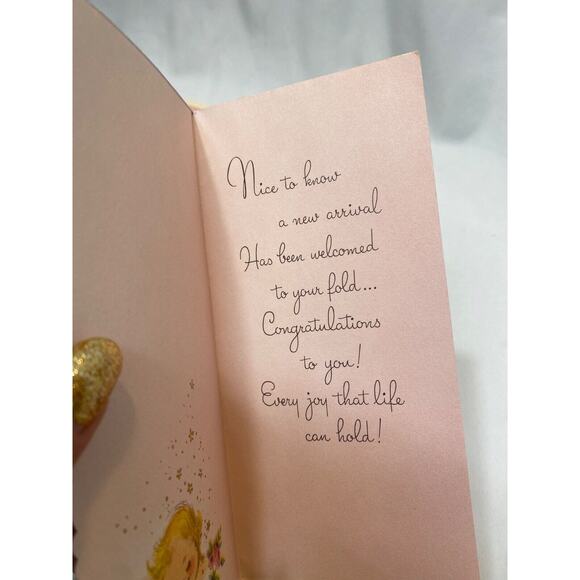 Nice to know
a new arrival
Has been welcomed
to your fold...
Congratulations
to you!
Every joy that life
can hold!